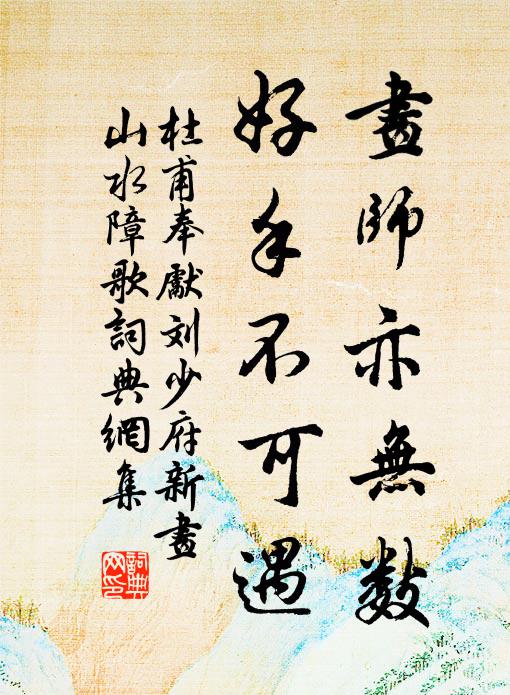 畫師亦無数
好手不可遇
杜甫奉獻刘少府新畫
山水障歌詞典網集
詞典
网印